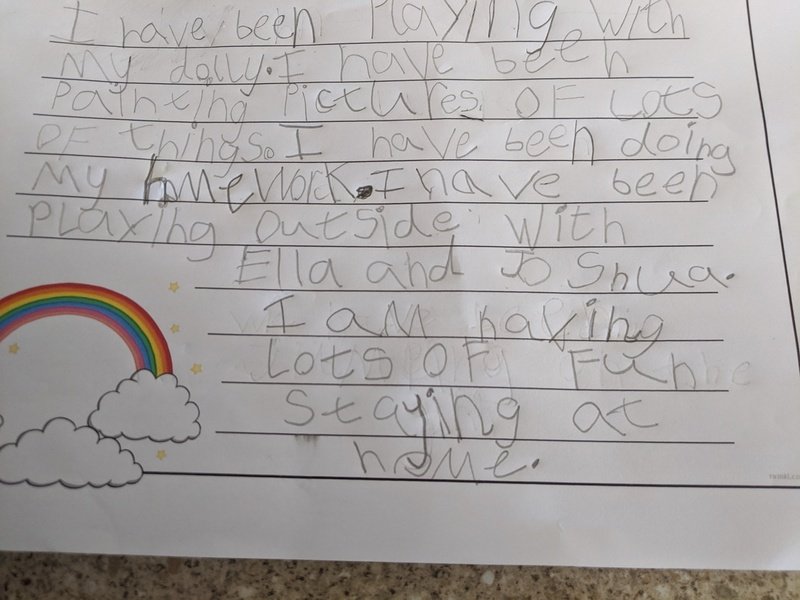 I have been Playing with
My dolly. I have been
Painting Pictures OF Lots
OF things. I have been doing
My homework. I have been
PLaying outside with
Ella and JoShua.
I am having
Lots OF Fun
Staying at
home.